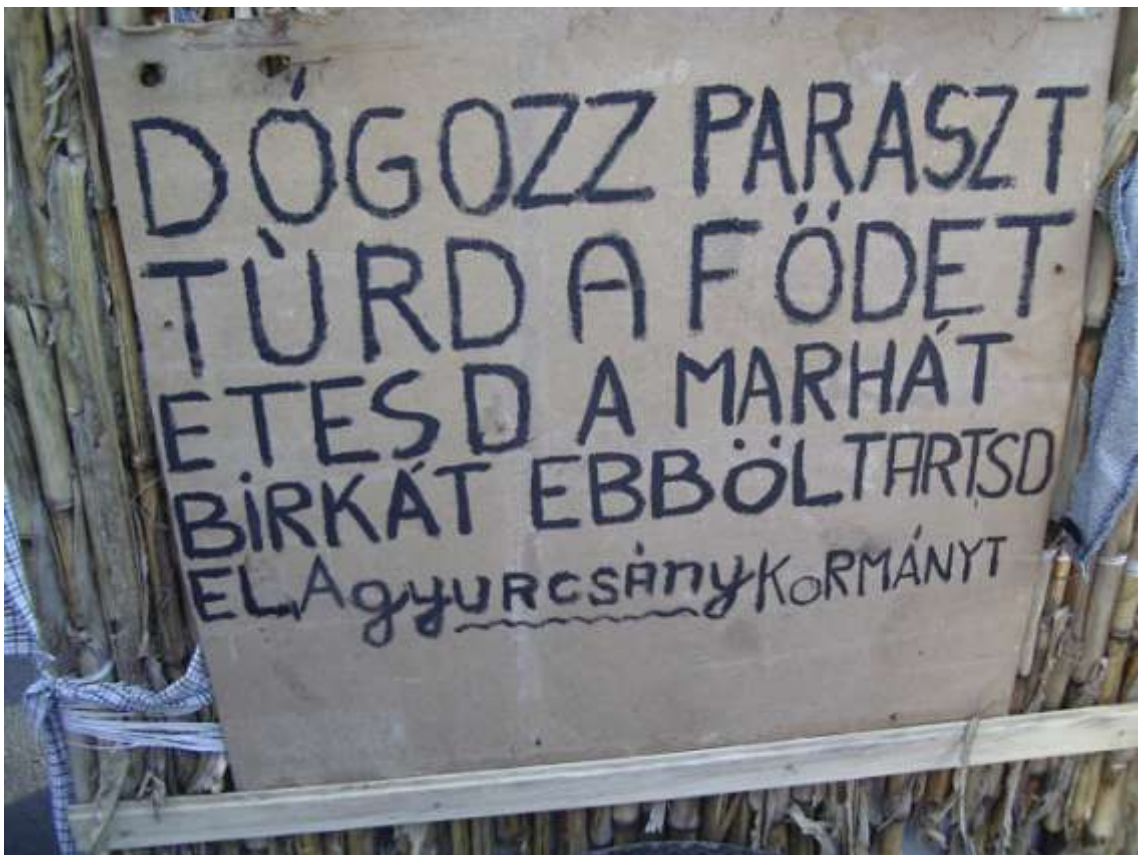 DÓGOZZ PARASZT
TÙRD A FÖDET
ETESD A MARHÁT
BİRKÁT EBBÖL TARTSD
EL A gyURCSÁny KoRMÁNYT